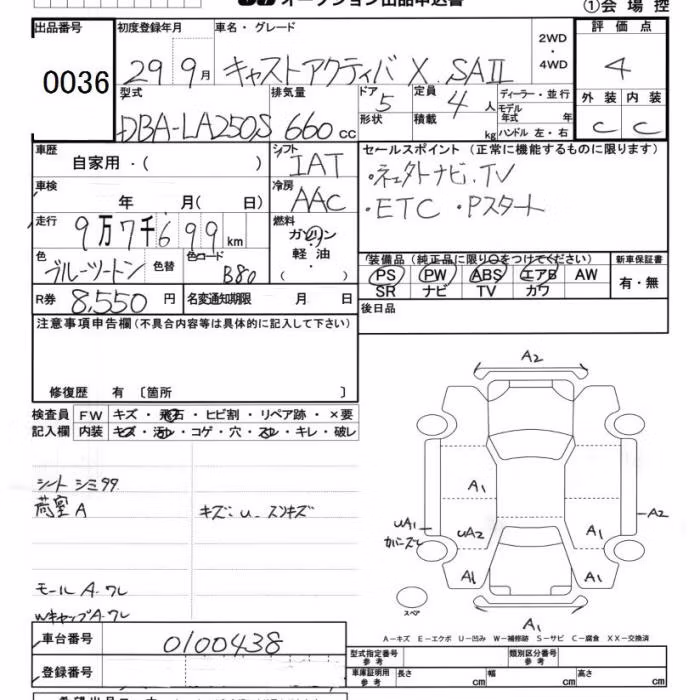 オークション出品申込書 ①会場控
出品番号 初度登録年月 車名・グレード 2WD ・ 4WD 評価点
0036 29 9月 キャストアクティバ X SAⅡ 4
型式 排気量 ドア 5 定員 4人 ディーラー・並行 外装 内装
DBA-LA250S 660cc 形状 積載 kg モデル年式 年 ハンドル 左・右 C C
車歴 自家用・( ) シフト IAT セールスポイント (正常に機能するものに限ります)
車検 年 月( 日) 冷房 AAC ・ネェクトナビ、TV
・ETC ・Pスタート
走行 9万7千699km 燃料 ガソリン・軽油・( )
色 ブルーツートン 色替 色コード B80
装備品 (純正品に限り○をつけてください) 新車保証書
PS PW ABS エアB AW 有・無
SR ナビ TV カワ
R券 8,550円 名変通知期限 月 日 後日品
注意事項申告欄(不具合内容等は具体的に記入して下さい)
修復歴 有 〔箇所 〕
検査員 FW キズ・飛石・ヒビ割・リペア跡・×要
記入欄 内装 キズ・汚レ・コゲ・穴・スレ・キレ・破レ
シート シミ99
荷室A キズ・U スンキズ
モール A・ワレ
Wキャップ A・ワレ
A2
A1
UA1 UA2 A1 A2
カバーズレ
A1 A1
スペア A1
A−キズ E−エクボ U−凹み W−補修跡 S−サビ C−腐食 XX−交換済
車台番号 0100438 型式指定番号 参考 類別区分番号 参考
登録番号 車庫証明用 参考 長さ cm 幅 cm 高さ cm